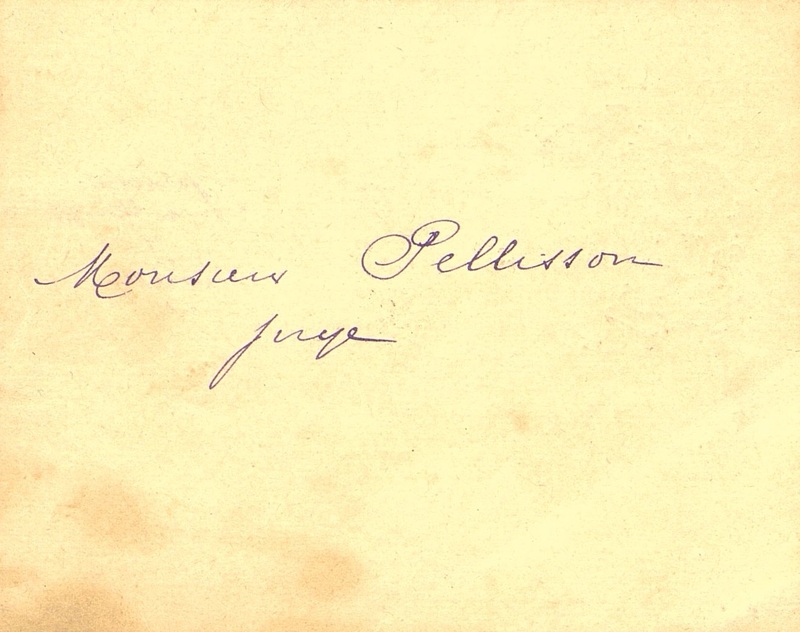 Monsieur Pellisson
juge